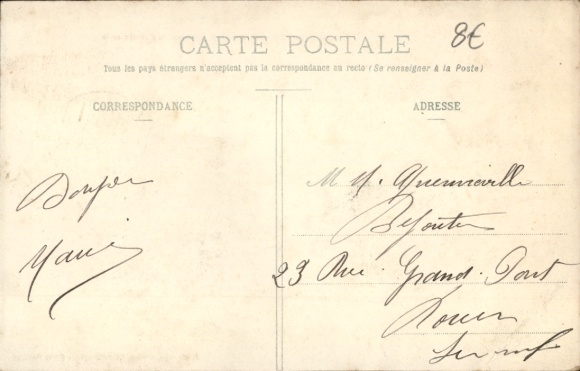 CARTE POSTALE
8€
Tous les pays étrangers n'acceptent pas la correspondance au recto (Se renseigner à la Poste)
CORRESPONDANCE
ADRESSE
Marie
M
23 Rue Grand-Pont
Rouen